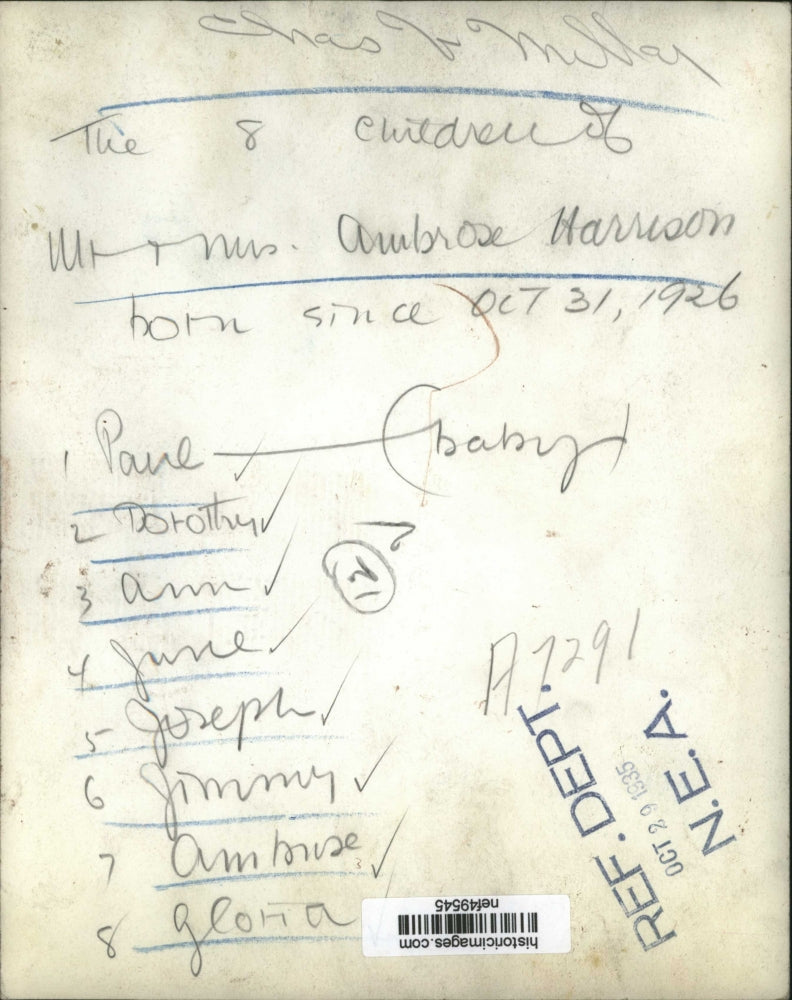 Chas V Millar
The 8 children of
Mr + Mrs. Ambrose Harrison
born since OCT 31, 1926
1 Paul — (baby)
2 Dorothy
3 Ann
12
4 June
A 7291
5 Joseph
6 Jimmy
7 Ambrose
8 Gloria
REF. DEPT.
OCT 29 1935
N.E.A.
historicimages.com
nef49545